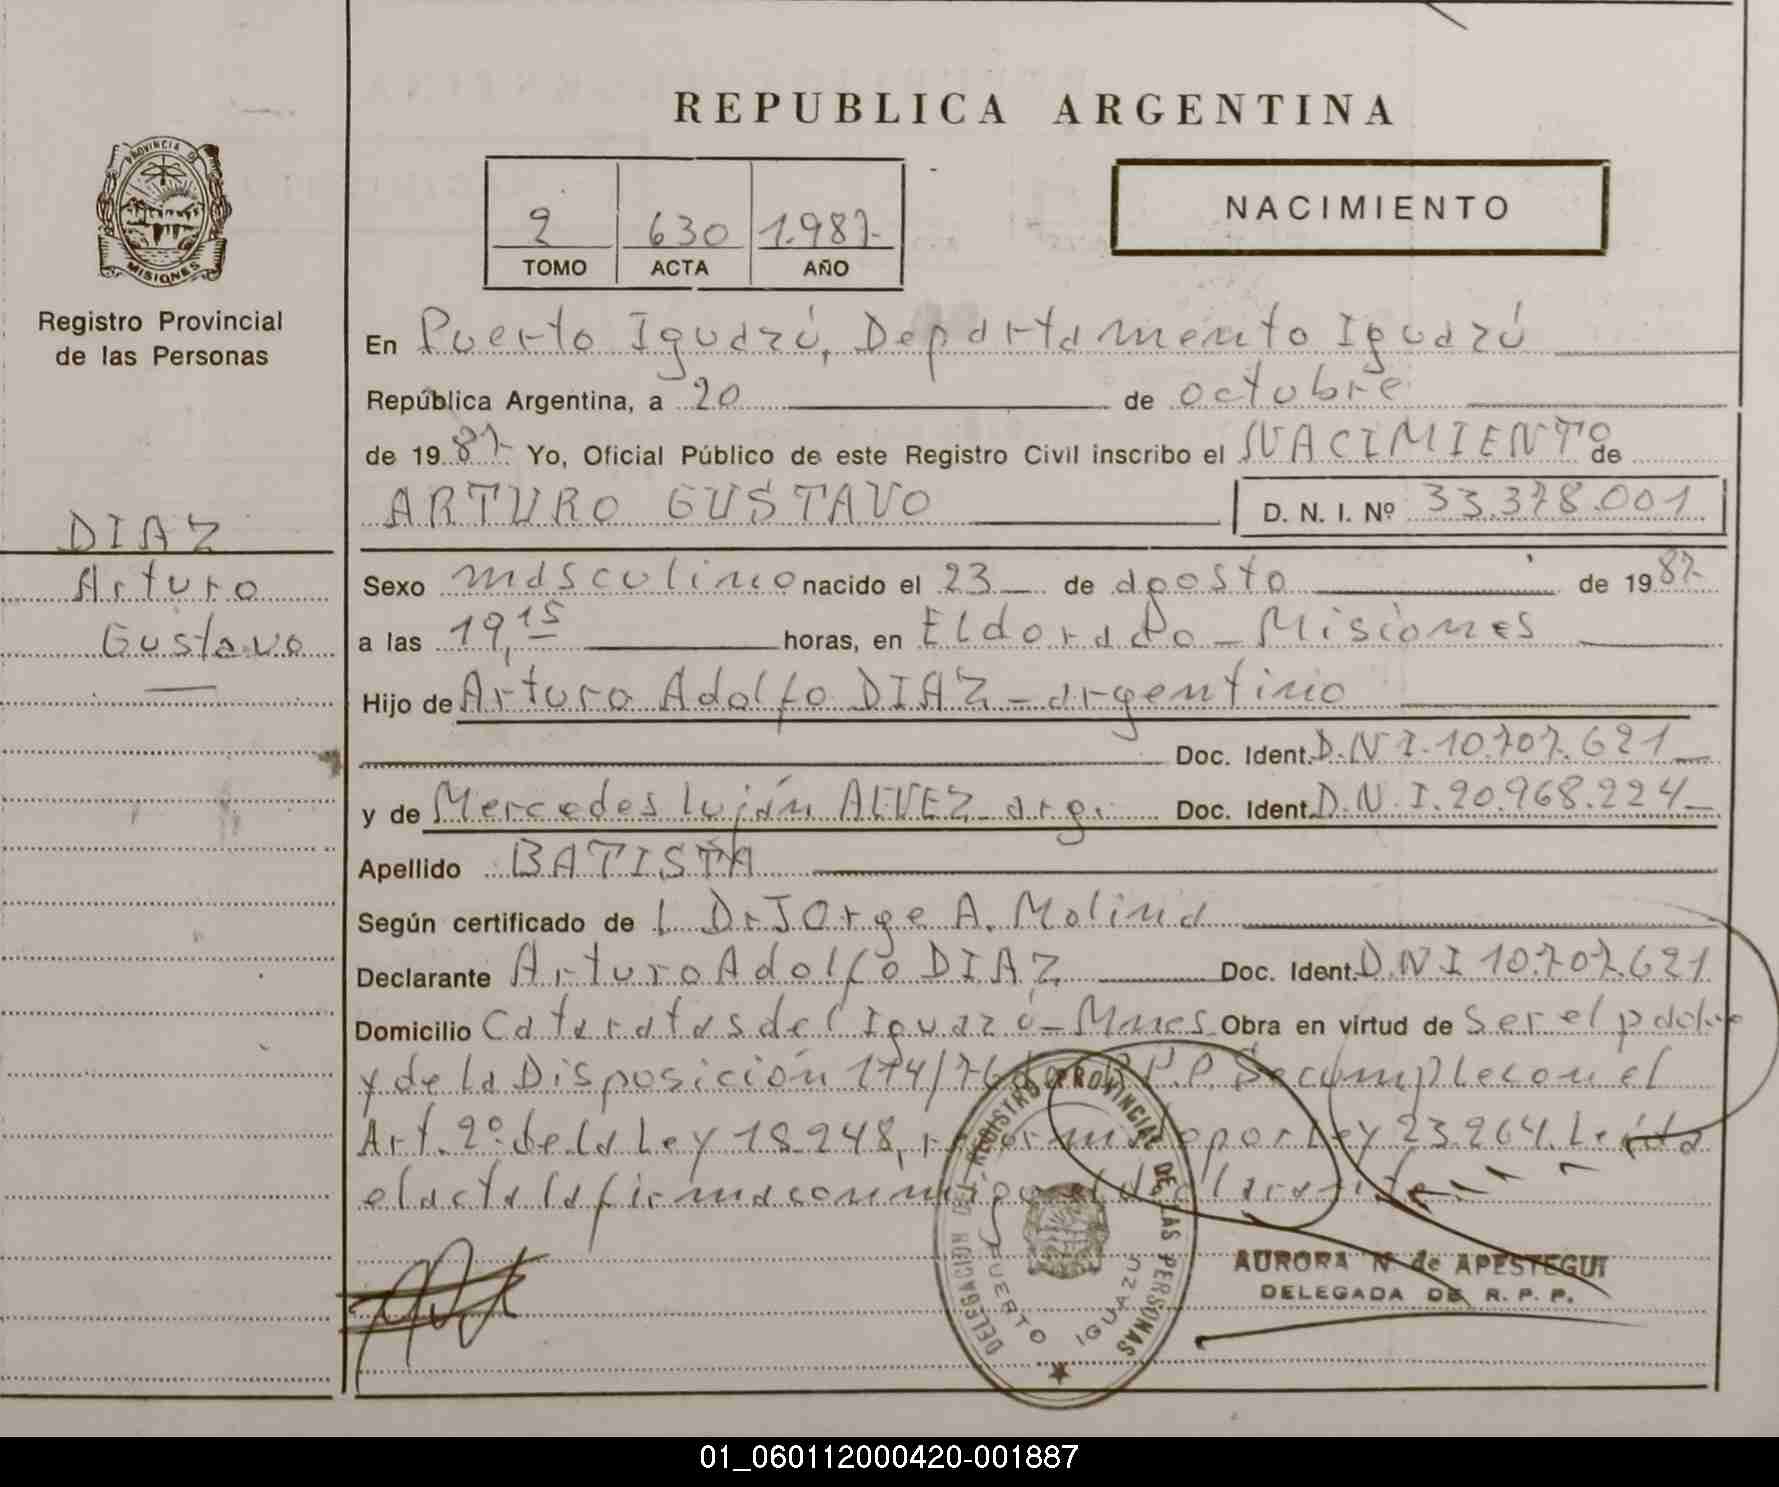 REPUBLICA ARGENTINA
PROVINCIA DE
MISIONES
Registro Provincial
de las Personas
2 630 1.987-
TOMO ACTA AÑO
NACIMIENTO
DIAZ
Arturo
Gustavo
En Puerto Iguazú, Departamento Iguazú
República Argentina, a 20 de octubre
de 1987- Yo, Oficial Público de este Registro Civil inscribo el NACIMIENTO de
ARTURO GUSTAVO D. N. I. Nº 33.378.001
Sexo masculino nacido el 23 de agosto de 1987-
a las 19,15 horas, en Eldorado - Misiones
Hijo de Arturo Adolfo DIAZ - argentino
Doc. Ident. D.N.I. 10.707.621
y de Mercedes Luján ALVEZ - arg. Doc. Ident. D.N.I. 20.968.224
Apellido BATISTA
Según certificado de l Dr Jorge A. Molina
Declarante Arturo Adolfo DIAZ Doc. Ident. D.N I 10.707.621
Domicilio Cataratas del Iguazú - Mnes Obra en virtud de ser el padre
y de la Disposición 174/76 R.P.P. Se cumple con el
Art. 2º de la Ley 18.248, reformado por Ley 23.264. Leída
el acta la firma conmigo el declarante
DELEGACION DEL REGISTRO PROVINCIAL DE LAS PERSONAS
PUERTO IGUAZU
AURORA N de APESTEGUI
DELEGADA DE R. P. P.
01_060112000420-001887